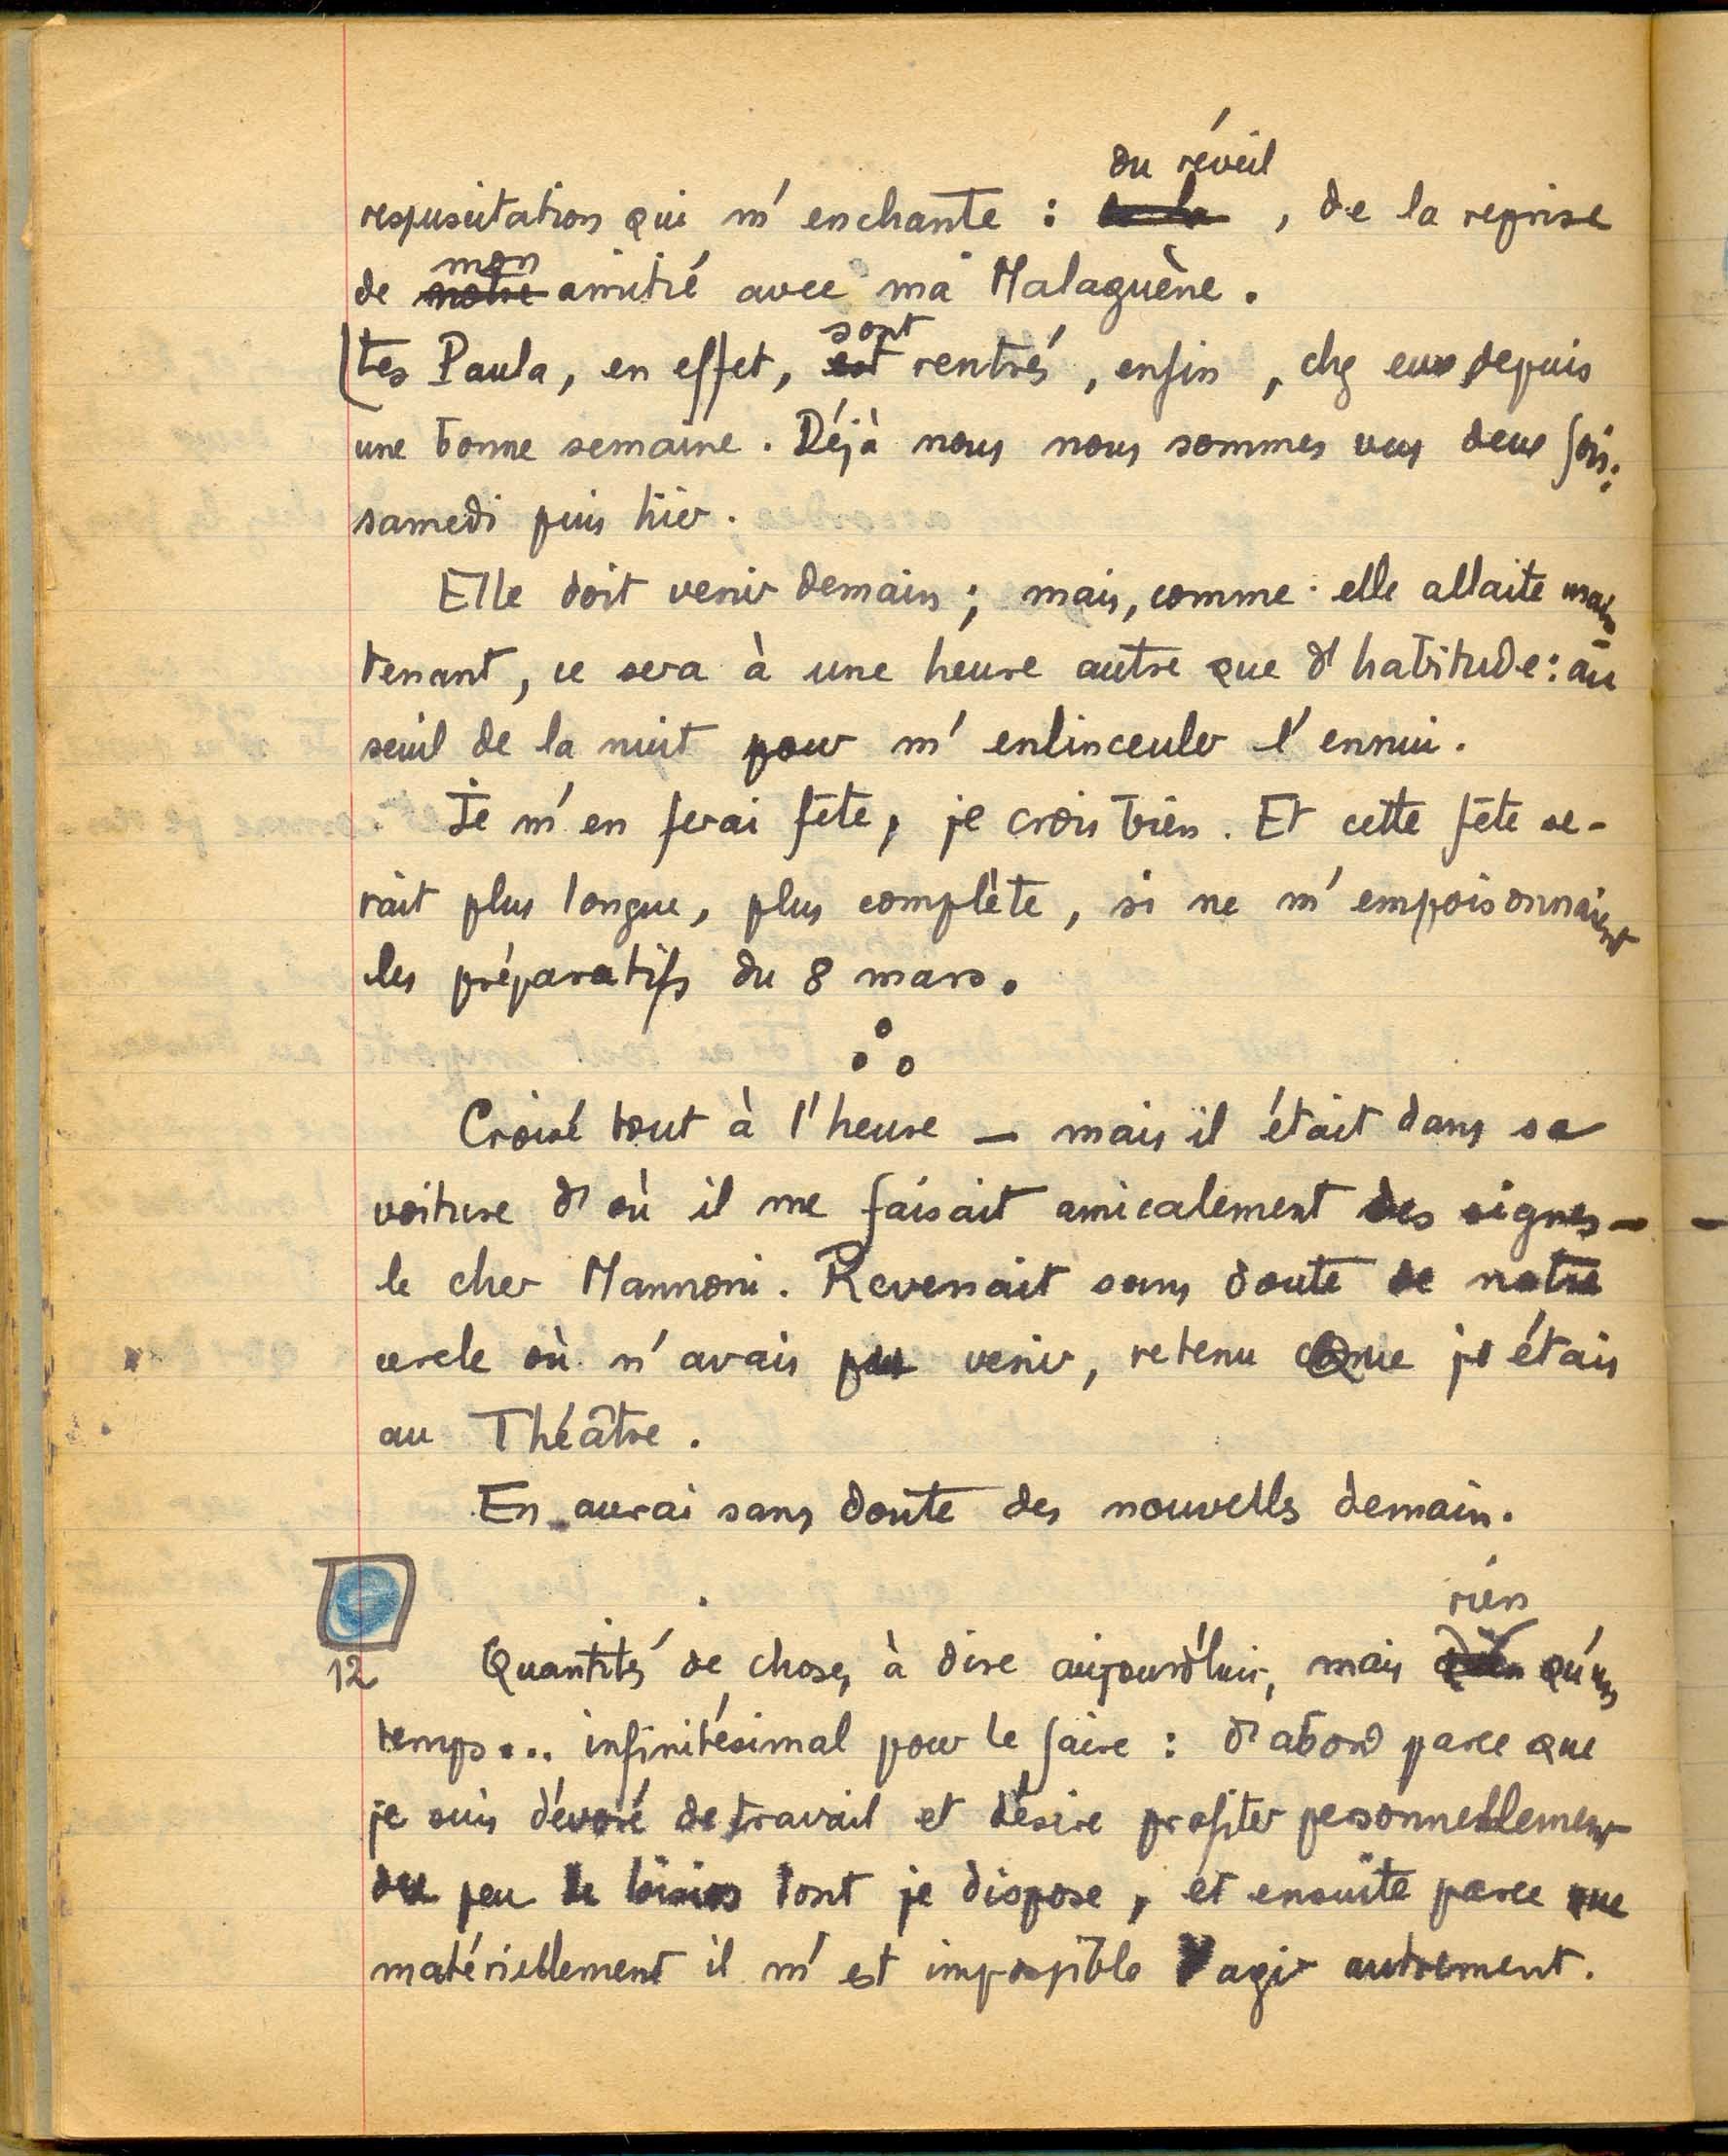 du réveil
ressuscitation qui m'enchante : de la , de la reprise
mon
de notre amitié avec ma Malaguène.
sont
Les Paula, en effet, est rentrés, enfin, chez eux depuis
une bonne semaine. Déjà nous nous sommes vus deux fois :
samedi puis hier.
Elle doit venir demain ; mais, comme elle allaite main-
tenant, ce sera à une heure autre que d'habitude : au
seuil de la nuit pour m'enlinceuler l'ennui.
Je m'en ferai fête, je crois bien. Et cette fête se-
rait plus longue, plus complète, si ne m'empoisonnaient
les préparatifs du 8 mars.
Croisé tout à l'heure — mais il était dans sa
voiture d'où il me faisait amicalement des signes —
le cher Mannoni. Revenait sans doute de notre
cercle où n'avais pu venir, retenu que j'étais
au Théâtre.
En aurai sans doute des nouvelles demain.
rien
12 Quantités de choses à dire aujourd'hui, mais qu'un
temps... infinitésimal pour le faire : d'abord parce que
je suis dévoré de travail et désire profiter personnellement
du peu de loisirs dont je dispose, et ensuite parce que
matériellement il m'est impossible d'agir autrement.